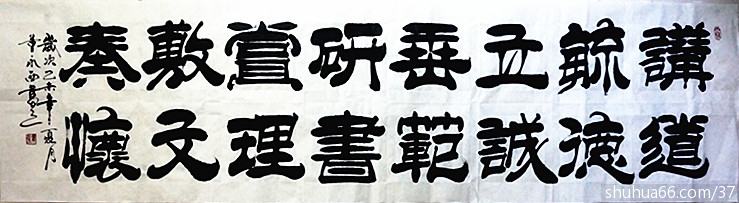 講道
毓德
立誠
垂範
研書
賞理
敷文
奏懷
歲次乙未年夏月
shuhua66.com/37